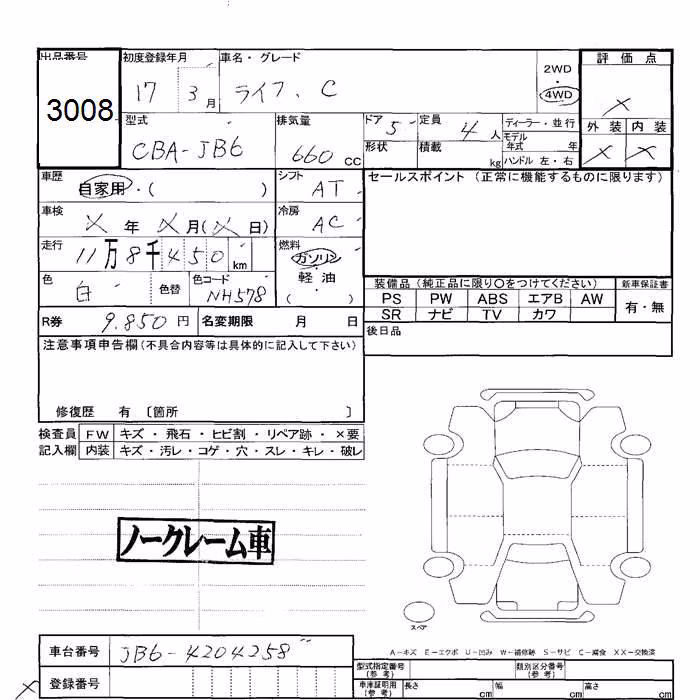 出品番号 初度登録年月 車名・グレード 2WD 評価点
3008 17 3月 ライフ、C 4WD ×
型式 排気量 ドア 5 定員 4人 ディーラー・並行 外装 内装
CBA-JB6 660cc 形状 積載 kg モデル年式 年 × ×
ハンドル 左・右
車歴 自家用・( ) シフト AT セールスポイント (正常に機能するものに限ります)
車検 ×年 ×月(×日) 冷房 AC
走行 11万8千450km 燃料 ガソリン・軽油・( )
色 白 色替 色コード NH578
装備品 (純正品に限り○をつけてください) 新車保証書
PS PW ABS エアB AW 有・無
SR ナビ TV カワ
R券 9.850円 名変期限 月 日 後日品
注意事項申告欄(不具合内容等は具体的に記入して下さい)
修復歴 有 〔箇所 〕
検査員 FW キズ・飛石・ヒビ割・リペア跡・×要
記入欄 内装 キズ・汚レ・コゲ・穴・スレ・キレ・破レ
ノークレーム車
スペア
A-キズ E-エクボ U-凹み W-補修跡 S-サビ C-腐食 XX-交換済
車台番号 JB6-4204258
型式指定番号(参考) 類別区分番号(参考)
登録番号
車庫証明用(参考) 長さ cm 幅 cm 高さ cm
×